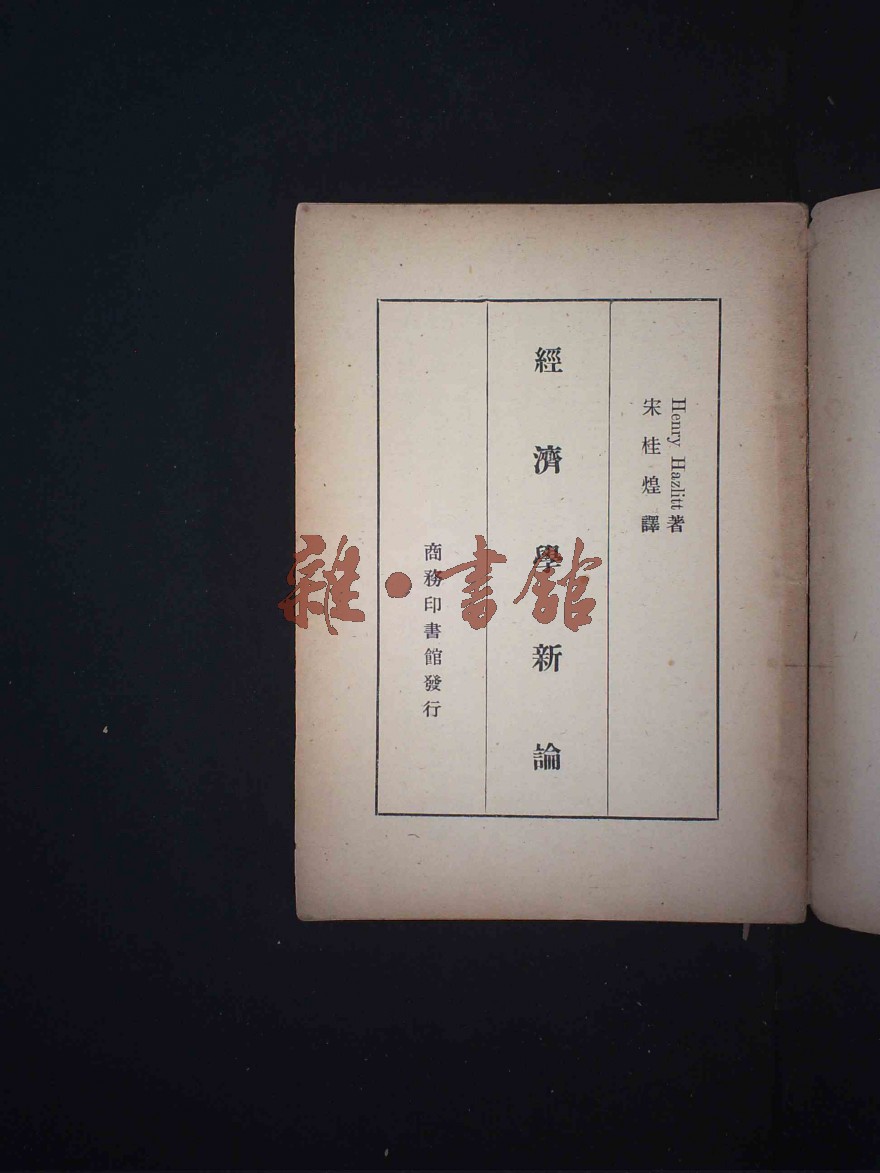 Henry Hazlitt 著
宋桂煌譯
經濟學新論
商務印書館發行
雜·書館